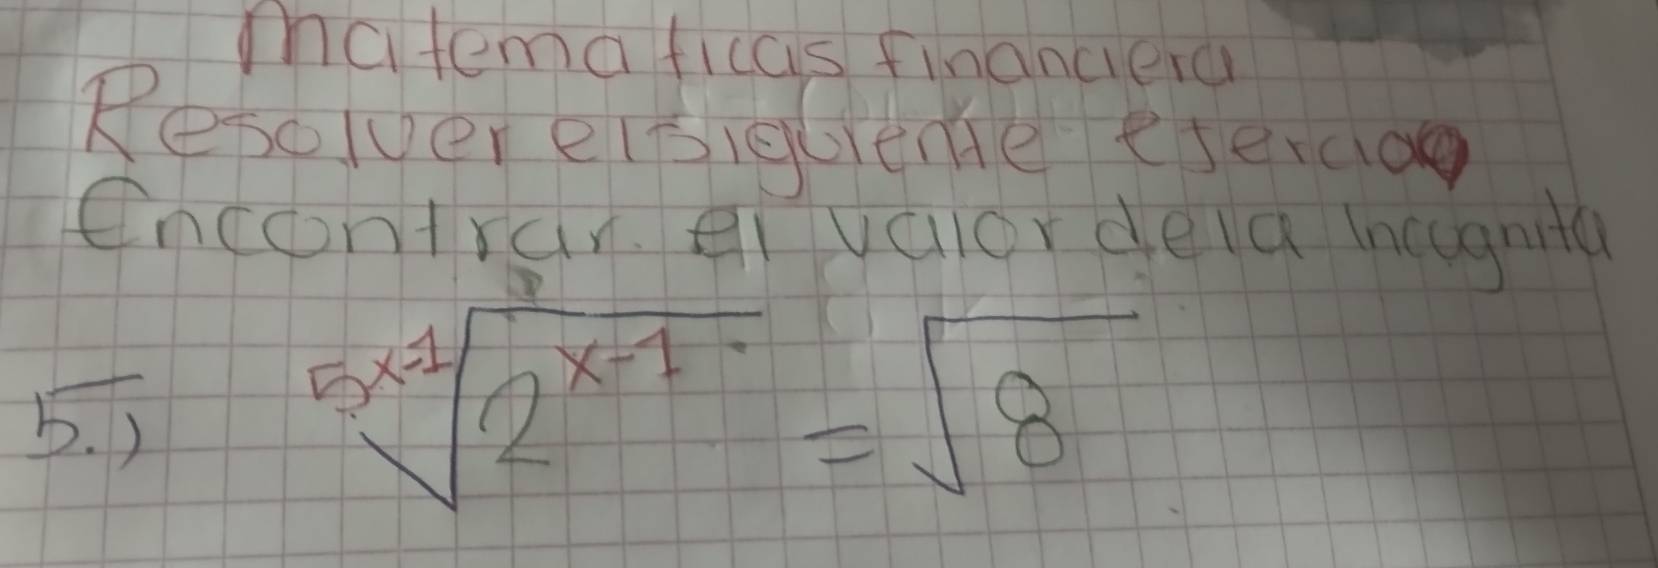 matematicas financiera
Resolver el siguiente ejercicio
Encontrar el valor de la incognita
5.) \sqrt[5^{x-1}]{2^{x-1}} = \sqrt{8}